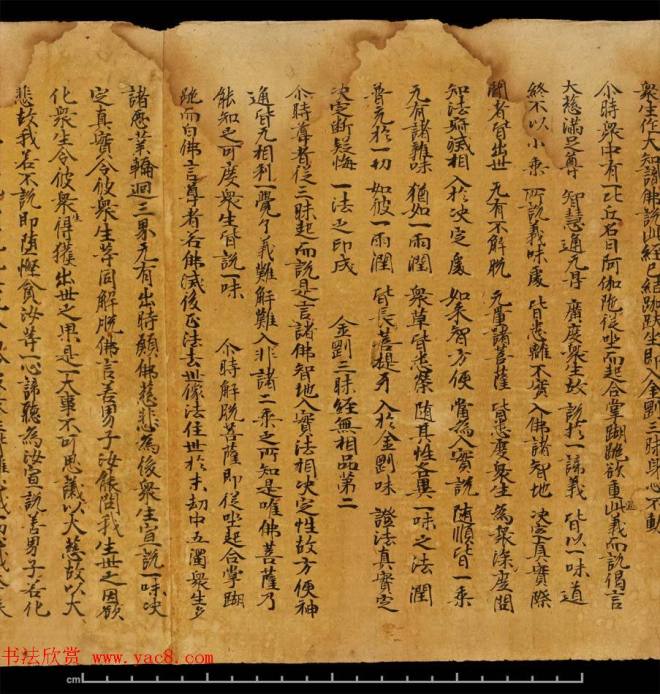 衆生作大知識佛說此經已結跏趺坐即入金剛三昧身心不動
尒時衆中有一比丘名曰阿伽陁從坐而起合掌䠒跪欲重此義而說偈言
大慈滿足尊 智慧通无㝵 廣度衆生故 說於一諦義 皆以一味道
終不以小乘 所說義味處 皆悉離不實 入佛諸智地 決定真實際
聞者皆出世 无有不解脫 无量諸菩薩 皆悉度衆生 為衆深廣問
知法寂滅相 入於決定處 如來智方便 當為入實說 隨順皆一乘
无有諸雜味 猶如一雨潤 衆草皆悉榮 隨其性各異 一味之法潤
普充於一切 如彼一雨潤 皆長菩提牙 入於金剛味 證法真實定
決定斷疑悔 一法之印成 金剛三昧經無相品第二
尒時尊者從三昧起而說是言諸佛智地入實法相決定性故方便神
通皆无相利一覺了義難解難入非諸二乘之所知是唯佛菩薩乃
能知之可度衆生皆說一味 尒時解脫菩薩即從坐起合掌䠒
跪而白佛言尊者若佛滅後正法去世像法住世於末劫中五濁衆生多
諸惡業輪迴三界无有出時願佛慈悲為後衆生宣說一味決
定真實令彼衆生等同解脫佛言善男子汝能問我出世之因欲
化衆生令彼衆生得獲出世之果是一大事不可思議以大慈故以大
悲故我若不說即墮慳貪汝等一心諦聽為汝宣說善男子若化
书法欣赏 www.yac8.com
cm